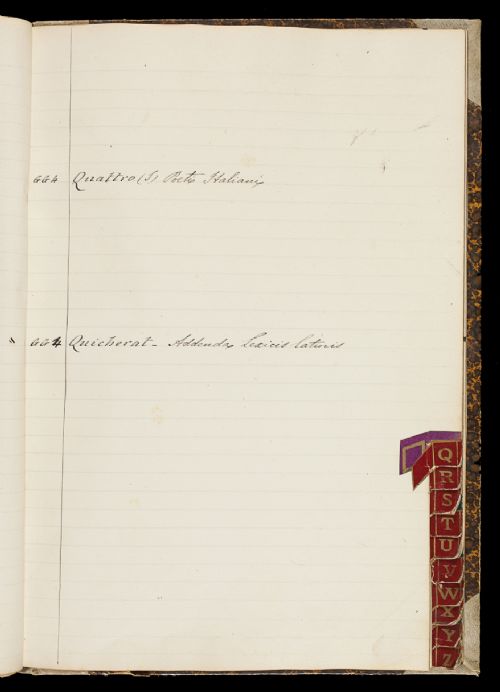 GG4 Quattro (I) Poeti Italiani
" GG4 Quicherat - Addenda Lexicis Latinis
Q
R
S
T
U
V
W
X
Y
Z